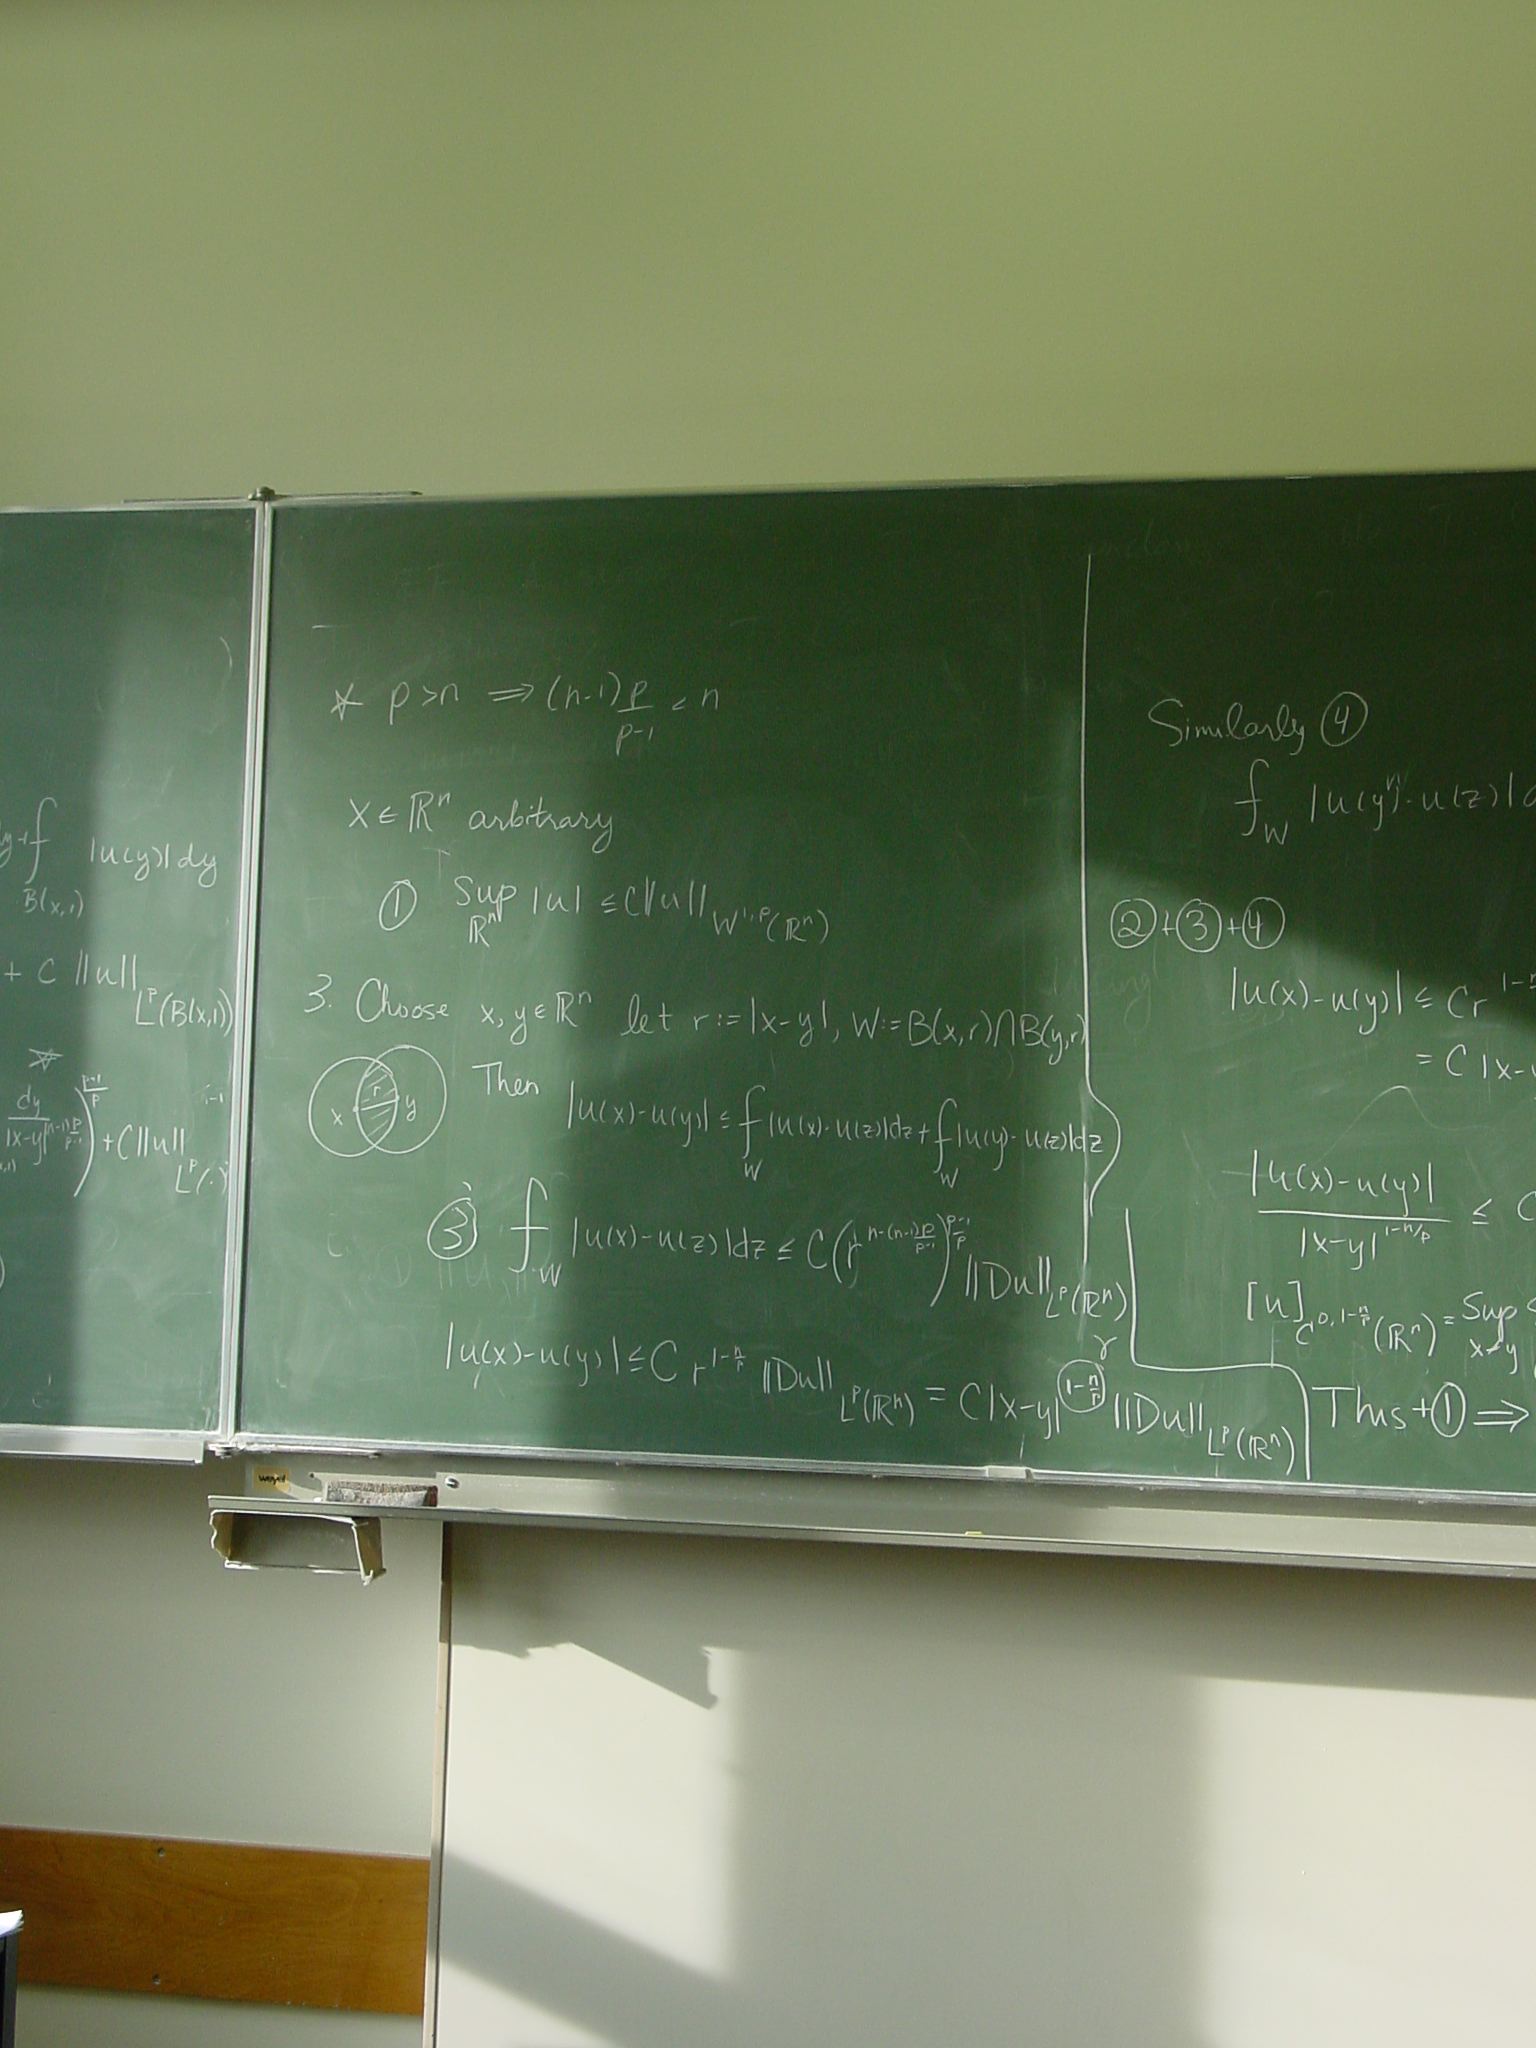 |u(y)| dy
B(x,1)
+ C ||u||
L^p(B(x,1))
☆
dy
|x-y|^{(n-1)p/(p-1)} )^{(p-1)/p} + C||u||
L^p(·)
☆ p>n ⟹ (n-1) p/(p-1) < n
x ∈ ℝ^n arbitrary
① Sup_{ℝ^n} |u| ≤ C||u||_{W^{1,p}(ℝ^n)}
3. Choose x, y ∈ ℝ^n let r := |x-y|, W := B(x,r) ∩ B(y,r)
x r y
Then |u(x)-u(y)| ≤ ⨍_W |u(x)-u(z)|dz + ⨍_W |u(y)-u(z)|dz
③ ⨍_W |u(x)-u(z)|dz ≤ C(r^{n-(n-1)p/(p-1)})^{(p-1)/p} ||Du||_{L^p(ℝ^n)}
|u(x)-u(y)| ≤ C r^{1-n/p} ||Du||_{L^p(ℝ^n)} = C|x-y|^{1-n/p} ||Du||_{L^p(ℝ^n)}
γ
Similarly ④
⨍_W |u(y)-u(z)|
②+③+④
|u(x)-u(y)| ≤ C r^{1-n
= C |x-
|u(x)-u(y)| / |x-y|^{1-n/p} ≤ C
[u]_{C^{0,1-n/p}(ℝ^n)} = Sup_{x≠y}
Thus + ① ⟹